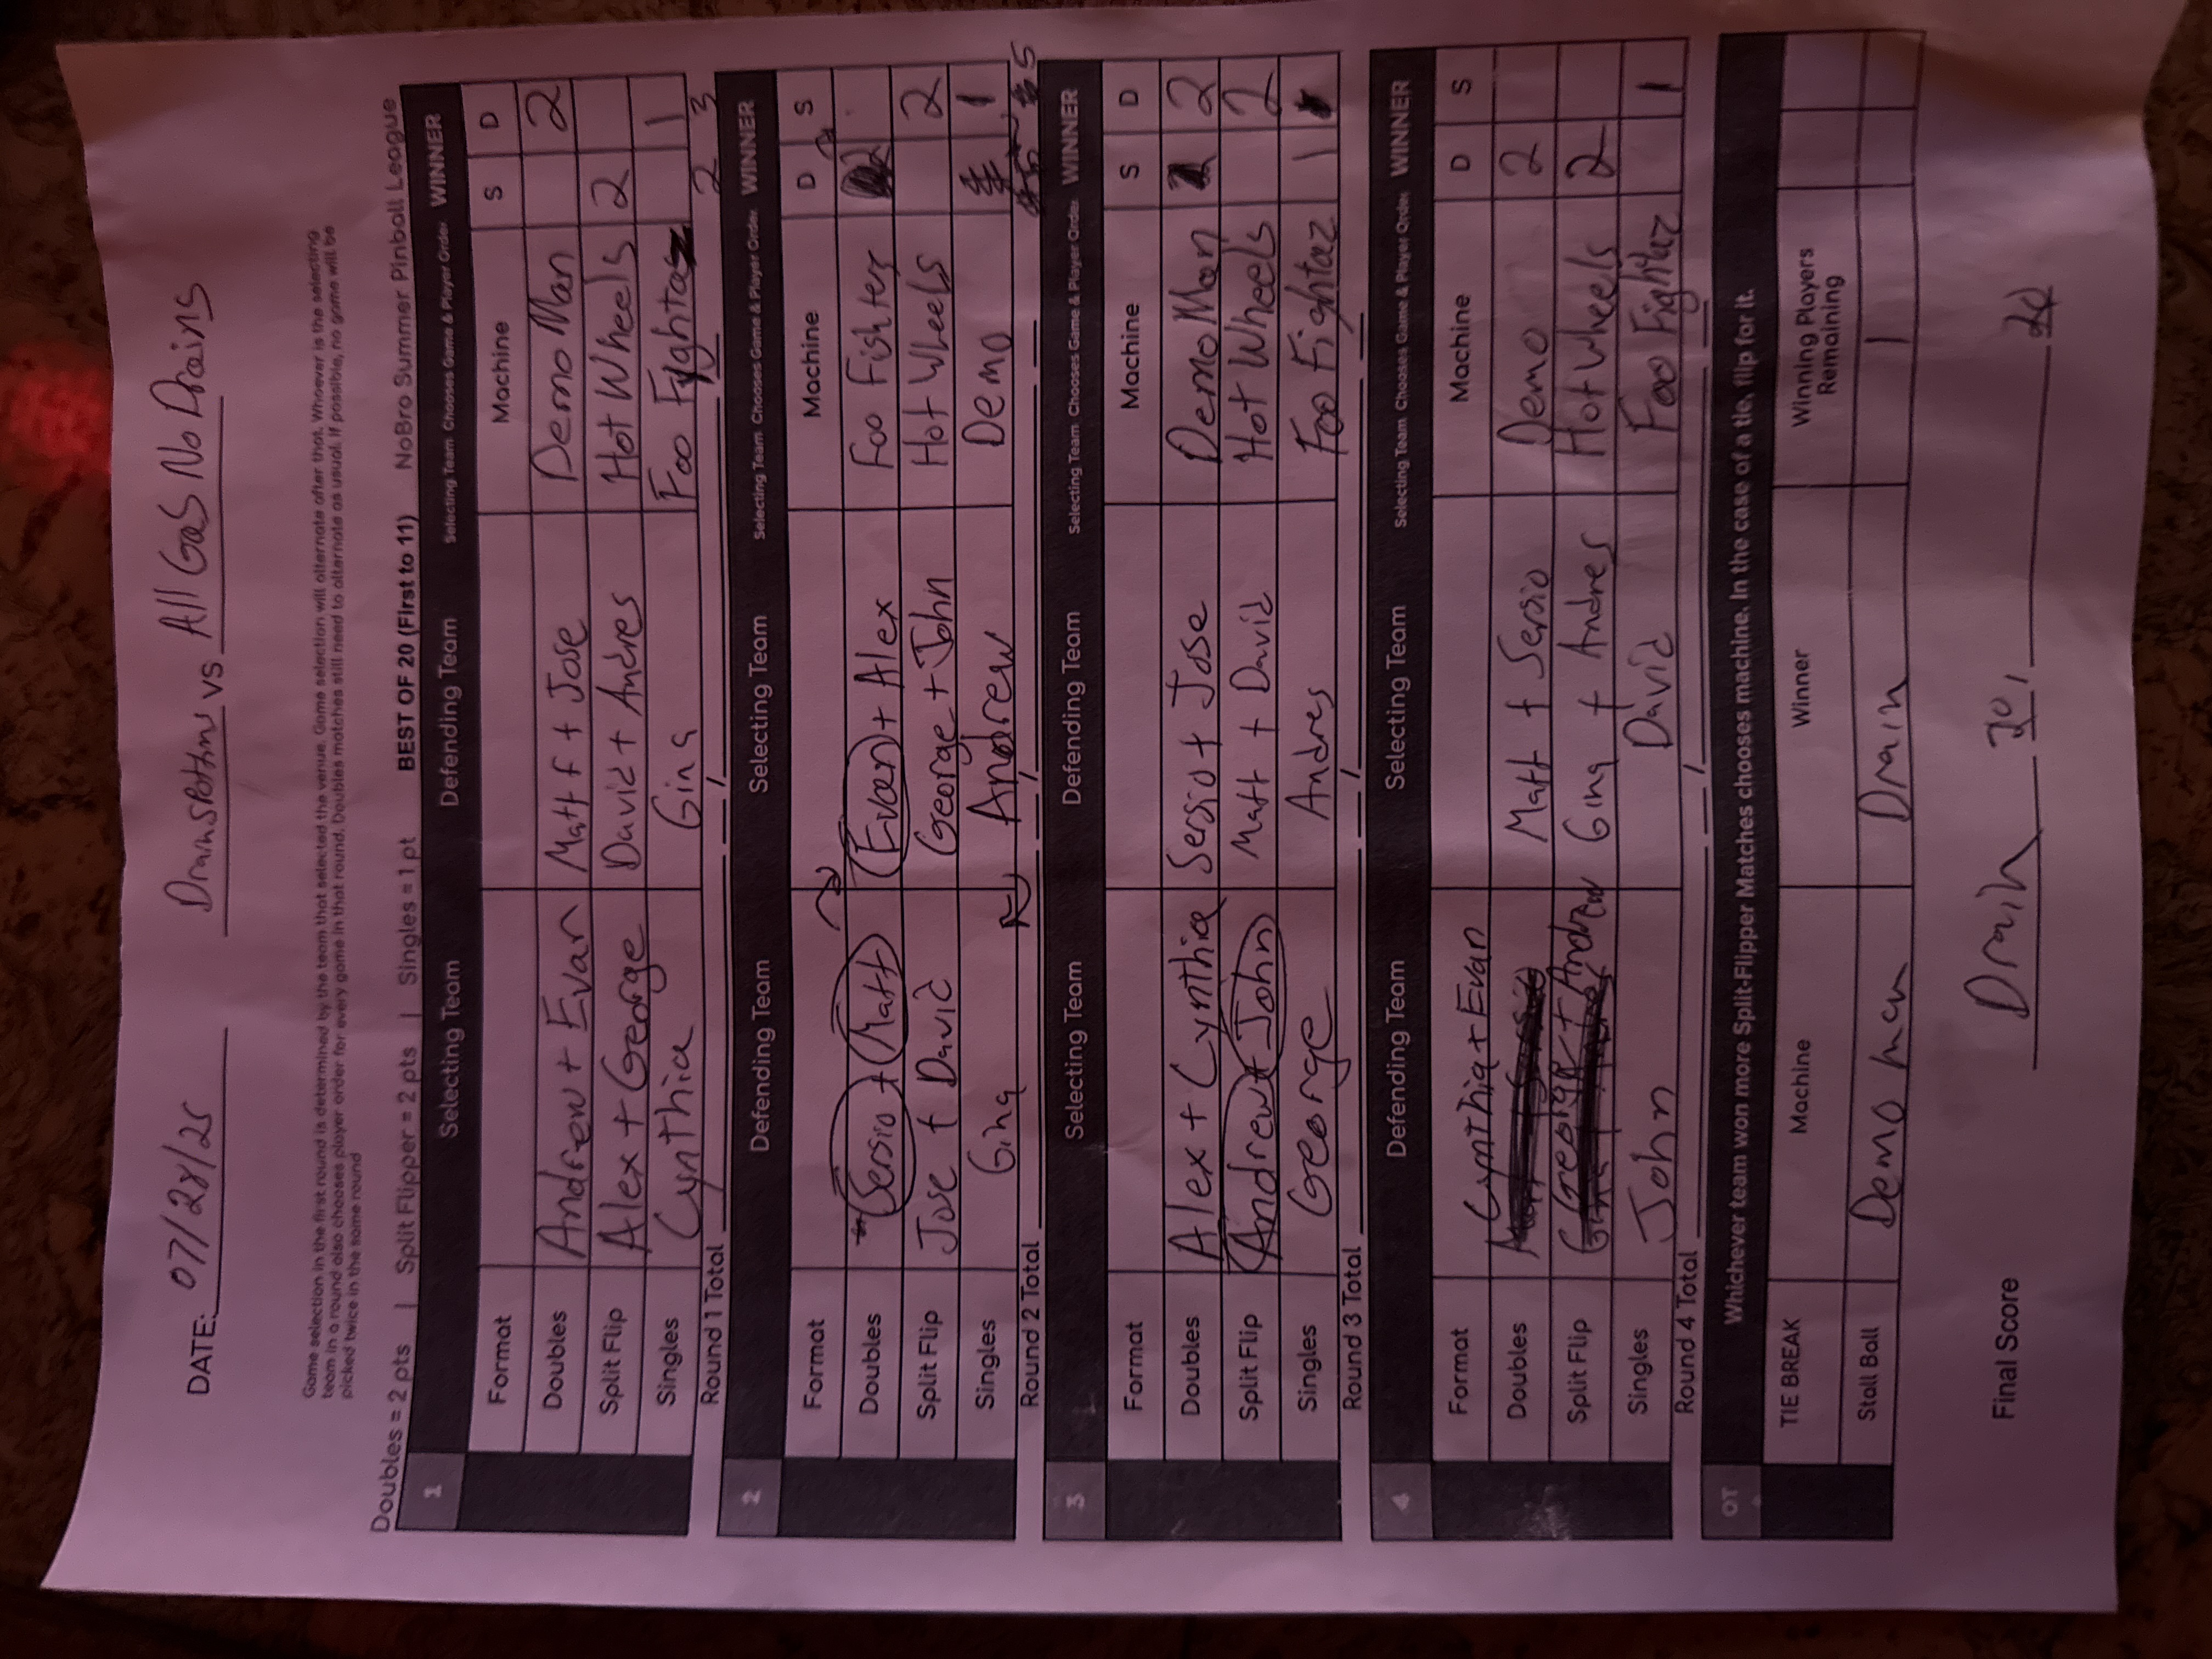 DATE: 07/28/25 vs All Gas No Drains
Game selection in the first round is determined by the team that selected the venue. Game selection will alternate after that. Whoever is the selecting
team in a round also chooses player order for every game in that round. Doubles matches still need to alternate as usual. If possible, no game will be
picked twice in the same round
Doubles = 2 pts | Split Flipper = 2 pts | Singles = 1 pt BEST OF 20 (First to 11) NoBro Summer Pinball League
1 Selecting Team Defending Team Selecting Team Chooses Game & Player Order. WINNER
Format Machine S D
Doubles Andrew + Evan Matt + Jose Demo Man 2
Split Flip Alex + George David + Andres Hot Wheels 2
Singles Cynthia Gina Foo Fyghtaz 1
Round 1 Total 2 3
2 Defending Team Selecting Team Selecting Team Chooses Game & Player Order. WINNER
Format Machine D S
Doubles Sersio + Matt Evan + Alex Foo Fighterz 2
Split Flip Jose + David George + John Hot Wheels 2
Singles Gina Andrew Demo 1
Round 2 Total 5
3 Selecting Team Defending Team Selecting Team Chooses Game & Player Order. WINNER
Format Machine S D
Doubles Alex + Cynthia Sersio + Jose Demo Man 2
Split Flip Andrew + John Matt + David Hot Wheels 2
Singles George Andres Foo Fightaz 1
Round 3 Total
4 Defending Team Selecting Team Selecting Team Chooses Game & Player Order. WINNER
Format Machine D S
Doubles Cynthia + Evan Matt + Sersio Demo 2
Split Flip George + Andrew Gina + Andres Hot Wheels 2
Singles John David Foo Fighterz 1
Round 4 Total
OT Whichever team won more Split-Flipper Matches chooses machine. In the case of a tie, flip for it.
TIE BREAK Machine Winner Winning Players Remaining
Stall Ball Demo man Drain 1
Final Score Drain